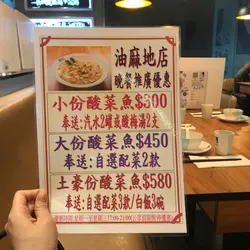 油麻地店
晚餐推廣優惠
小份酸菜魚$300
奉送:汽水2罐或酸梅湯2支
大份酸菜魚$450
奉送:自選配菜2款
土豪份酸菜魚$580
奉送:自選配菜3款/白飯3碗